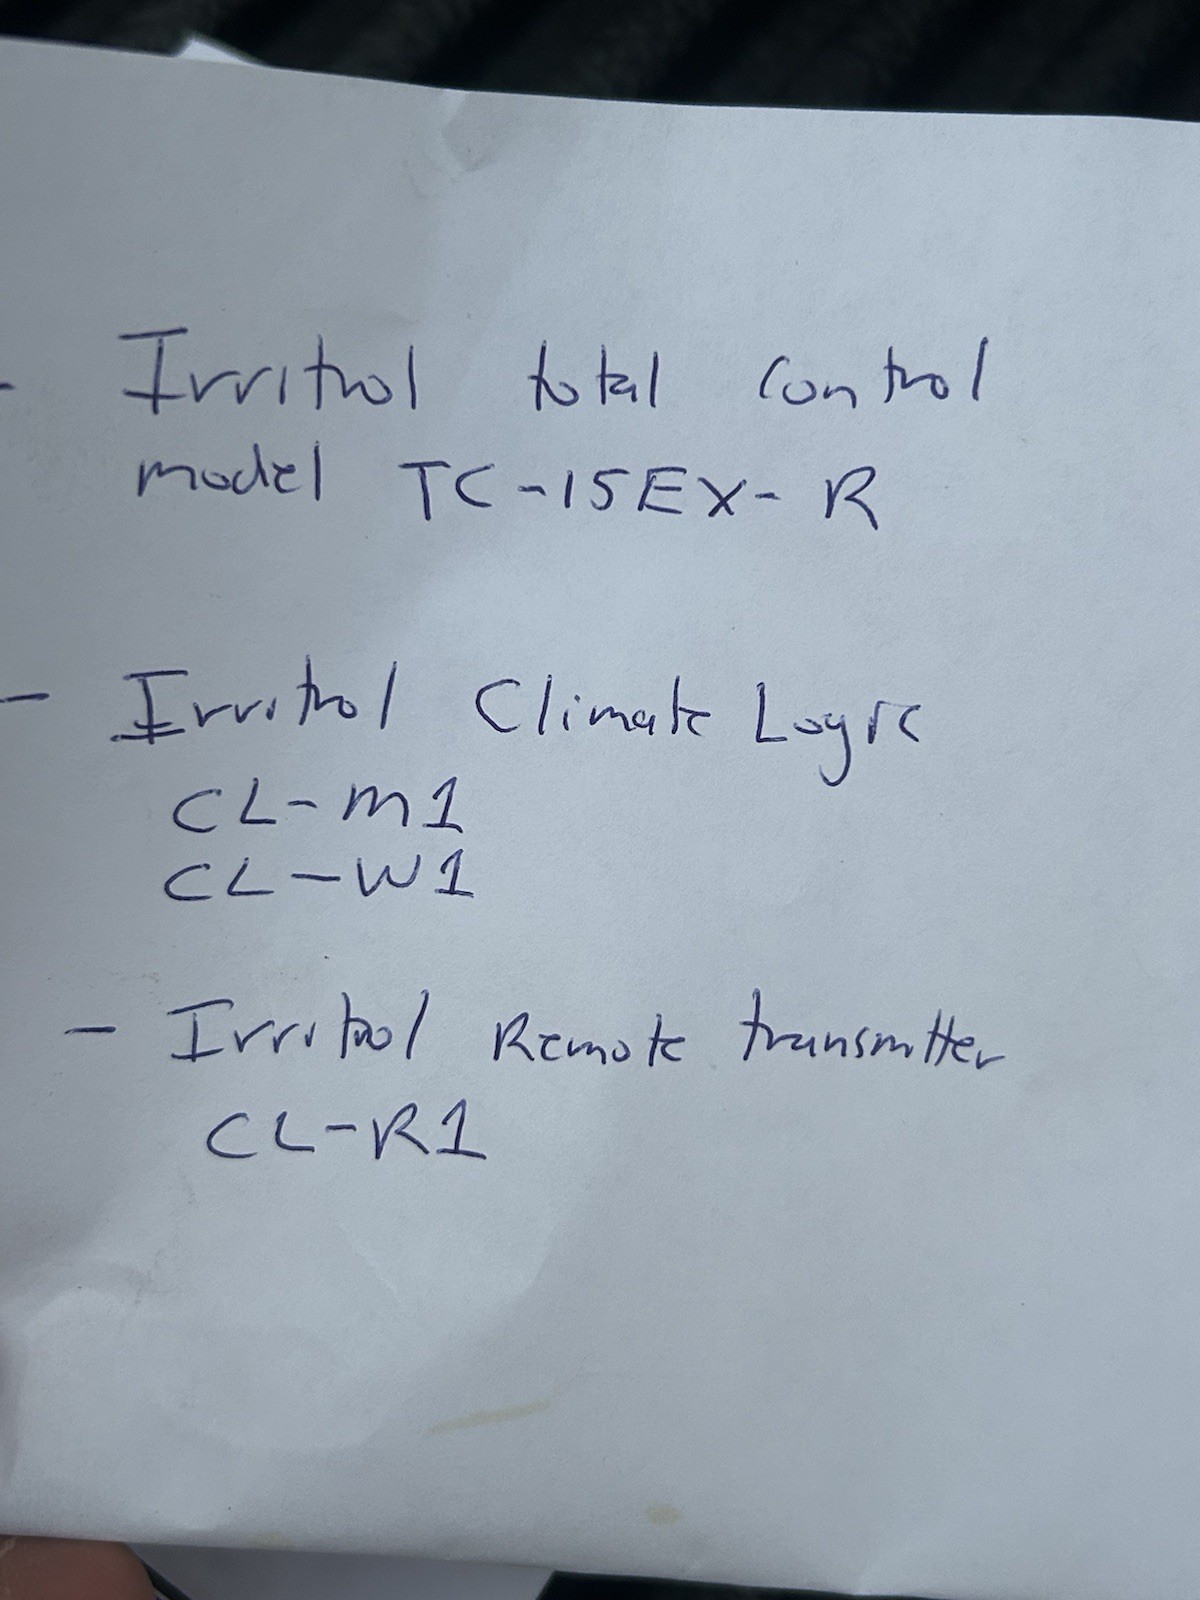 - Irritrol total control
model TC-15EX-R
- Irritrol Climate Logic
CL-M1
CL-W1
- Irritrol Remote transmitter
CL-R1